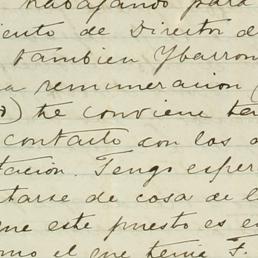 trabajando para
iento de Director d
tambien Ybarron
a remuneracion (
) te conviene ten
contacto con los a
tacion. Tengo esper
tarse de cosa de l
ue este puesto es e
omo el que tenia F.